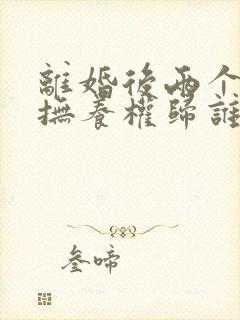 離婚後兩个
撫養權歸誰
叁啼